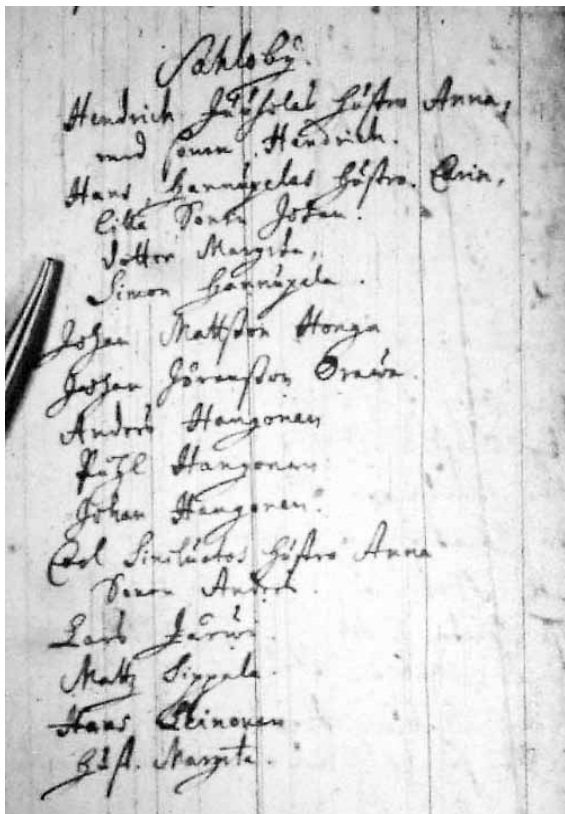 Sahloby.
Hendrich Hüstro Anna,
med sonen Hendrich.
Hans Hannüxelas hüstro. Carin,
lilla Sonen Johan.
dotter Margita,
Simon Hannüxela.
Johan Mattsson Honga
Johan Jöransson Orawa.
Anders Hangonen
Påhl Hangonen
Johan Hangonen.
Carl Siniluotos hüstro Anna
Sonen Anders.
Lars
Matz Sippala.
Hans Leinonen
Hüst. Margita.